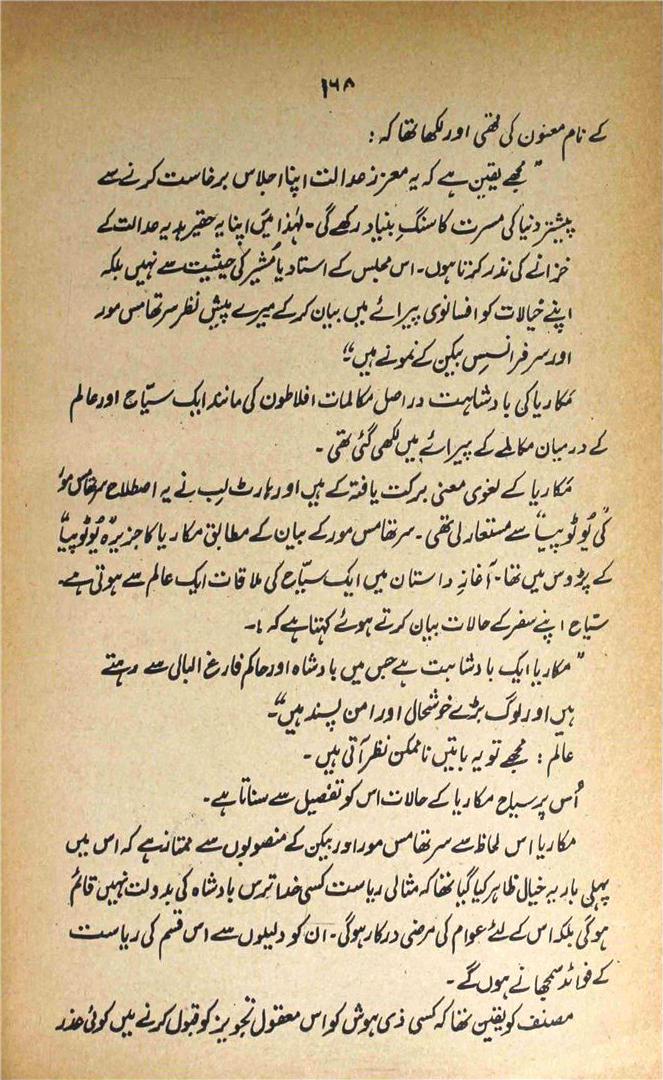 ۱۶۸
کے نام معنون کی تھی اور لکھا تھا کہ :
"مجھے یقین ہے کہ یہ معزز عدالت اپنا اجلاس برخاست کرنے سے
پیشتر دنیا کی مسرت کا سنگِ بنیاد رکھے گی۔ لہٰذا میں اپنا یہ حقیر ہدیہ عدالت کے
خزانے کی نذر کرتا ہوں۔ اس مجلس کے استاد یا مُشیر کی حیثیت سے نہیں بلکہ
اپنے خیالات کو افسانوی پیرائے میں بیان کر کے میرے پیشِ نظر سر تھامس مور
اور سر فرانسس بیکن کے نمونے ہیں"
مَکاریا کی بادشاہت در اصل مکالمات افلاطون کی مانند ایک سیّاح اور عالم
کے درمیان مکالمے کے پیرائے میں لکھی گئی تھی ۔
مَکاریا کے لغوی معنی برکت یافتہ کے ہیں اور ہارٹ لِب نے یہ اصطلاح سر تھامس مور
کی "یُوٹوپیا" سے مستعار لی تھی ۔ سر تھامس مور کے بیان کے مطابق مکاریا کا جزیرہ "یُوٹوپیا"
کے پڑوس میں تھا۔ آغازِ داستان میں ایک سیّاح کی ملاقات ایک عالم سے ہوتی ہے۔
سیّاح اپنے سفر کے حالات بیان کرتے ہوئے کہتا ہے کہ :۔
"مکاریا ایک بادشاہت ہے جس میں بادشاہ اور حاکم فارغ البالی سے رہتے
ہیں اور لوگ بڑے خوشحال اور امن پسند ہیں"۔
عالم : مجھے تو یہ باتیں ناممکن نظر آتی ہیں ۔
اُس پر سیاح مکاریا کے حالات اس کو تفصیل سے سناتا ہے۔
مکاریا اس لحاظ سے سر تھامس مور اور بیکن کے منصوبوں سے ممتاز ہے کہ اس میں
پہلی بار یہ خیال ظاہر کیا گیا تھا کہ مثالی ریاست کسی خدا ترس بادشاہ کی بدولت نہیں قائم
ہو گی بلکہ اس کے لئے عوام کی مرضی درکار ہوگی۔ ان کو دلیلوں سے اس قسم کی ریاست
کے فوائد سمجھانے ہوں گے ۔
مصنف کو یقین تھا کہ کسی ذی ہوش کو اس معقول تجویز کو قبول کرنے میں کوئی عذر